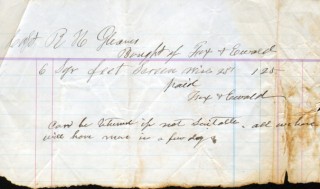 R H Gleaves
Bought of Fox & Ewald
6 Sqr feet Screen Wire 25 1 25
Paid
Fox & Ewald
Can be returnd if not Suitable. all we have
will have more in a few days